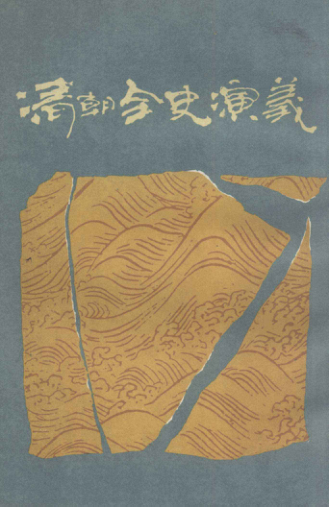 清朝全史演義